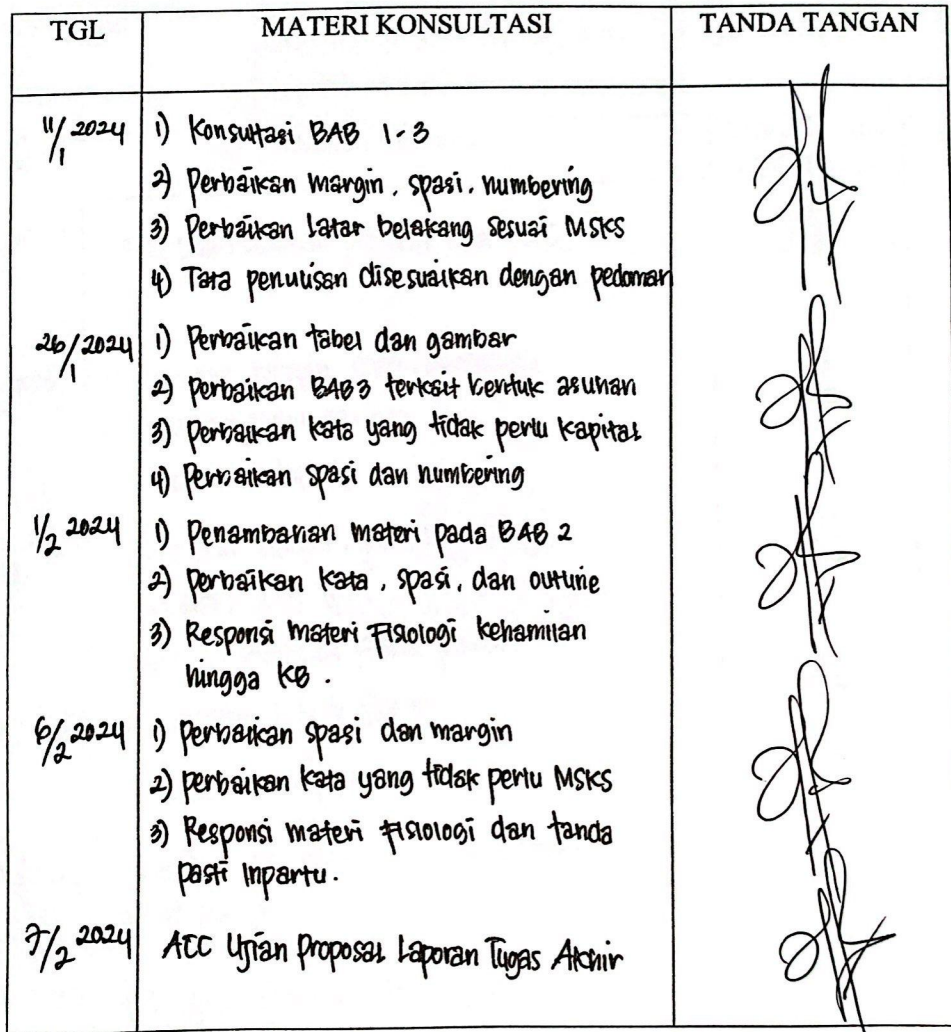 TGL MATERI KONSULTASI TANDA TANGAN
11/1 2024 1) Konsultasi BAB 1-3
2) Perbaikan margin, spasi, numbering
3) Perbaikan Latar belakang sesuai MSKS
4) Tata penulisan disesuaikan dengan pedoman
26/1 2024 1) Perbaikan tabel dan gambar
2) Perbaikan BAB 3 terkait bentuk asuhan
3) Perbaikan kata yang tidak perlu kapital
4) Perbaikan spasi dan numbering
1/2 2024 1) Penambahan materi pada BAB 2
2) Perbaikan kata, spasi, dan outline
3) Responsi materi Fisiologi kehamilan
hingga KB.
6/2 2024 1) Perbaikan spasi dan margin
2) Perbaikan kata yang tidak perlu MSKS
3) Responsi materi Fisiologi dan tanda
pasti Inpartu.
7/2 2024 ACC Ujian Proposal Laporan Tugas Akhir